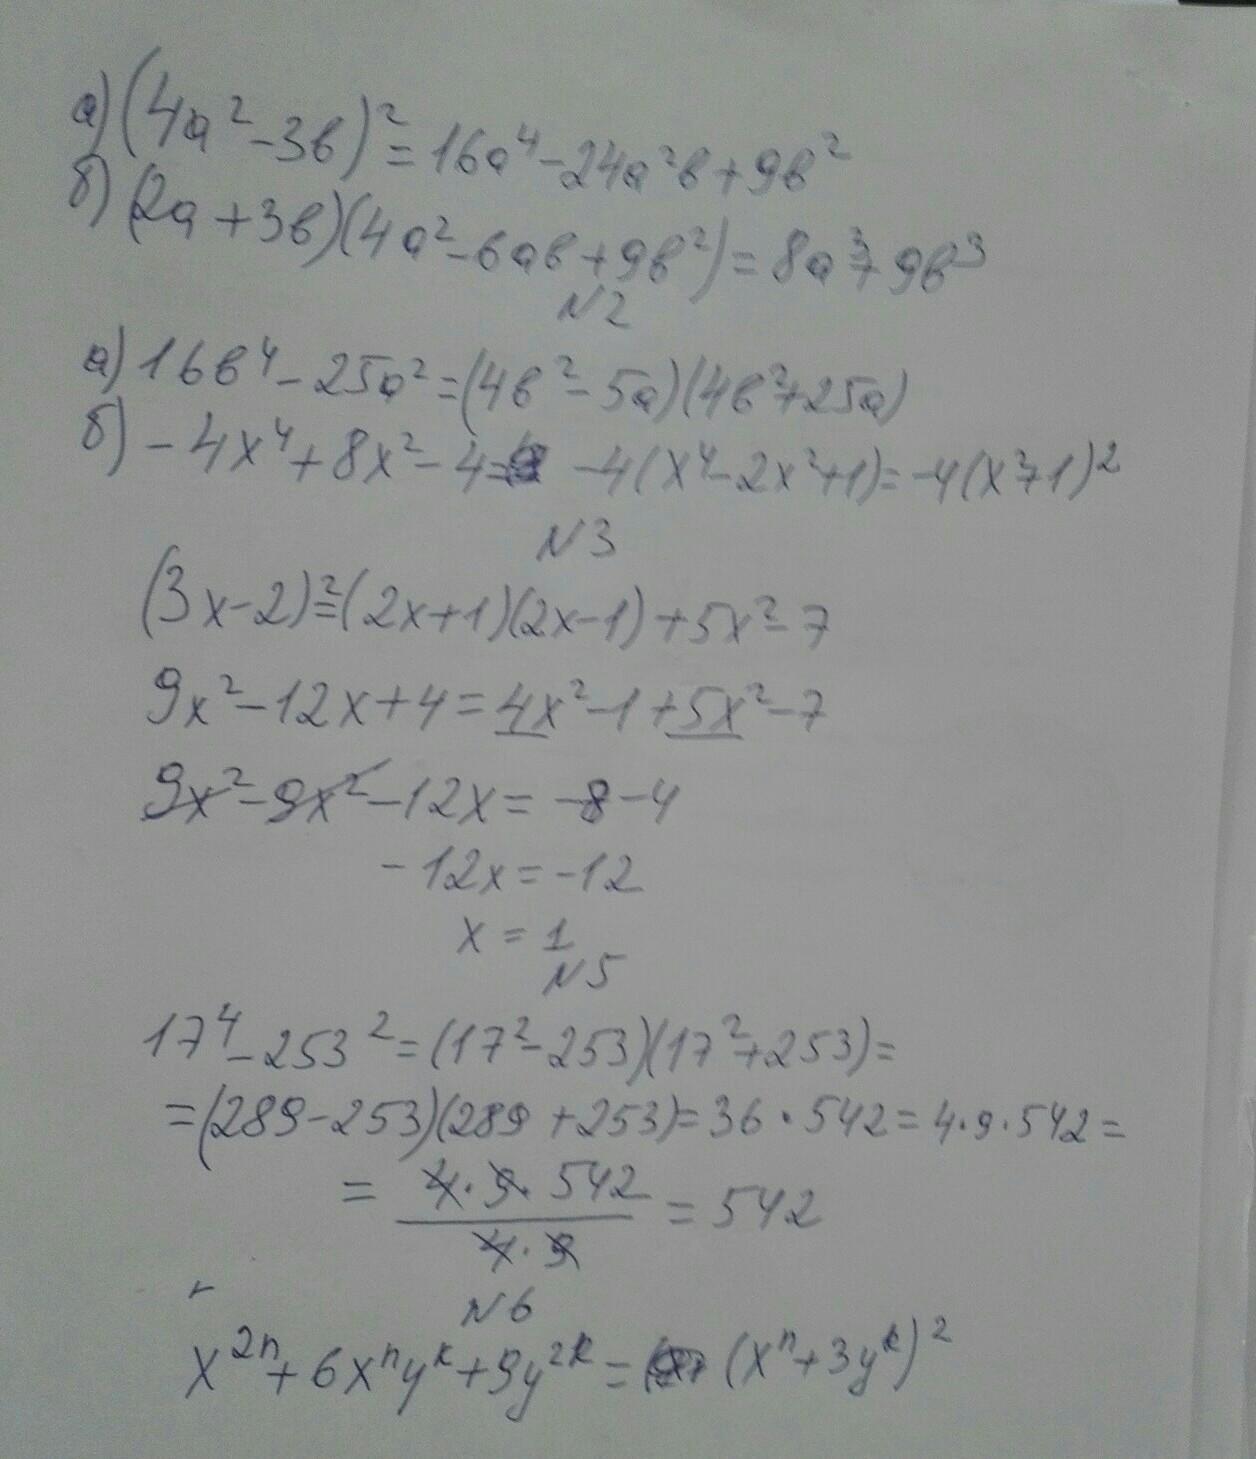 а) (4a² - 3b)² = 16a⁴ - 24a²b + 9b²
б) (2a + 3b)(4a² - 6ab + 9b²) = 8a³ + 9b³
N2
а) 16b⁴ - 25a² = (4b² - 5a)(4b² + 25a)
б) - 4x⁴ + 8x² - 4 = -4(x⁴ - 2x² + 1) = -4(x² + 1)²
N3
(3x - 2)² = (2x + 1)(2x - 1) + 5x² - 7
9x² - 12x + 4 = 4x² - 1 + 5x² - 7
9x² - 9x² - 12x = -8 - 4
- 12x = -12
x = 1
N5
17⁴ - 253² = (17² - 253)(17² + 253) =
= (289 - 253)(289 + 253) = 36 · 542 = 4 · 9 · 542 =
= 4 · 9 · 542 / 4 · 9 = 542
N6
x²ⁿ + 6xⁿyᵏ + 9y²ᵏ = (xⁿ + 3yᵏ)²